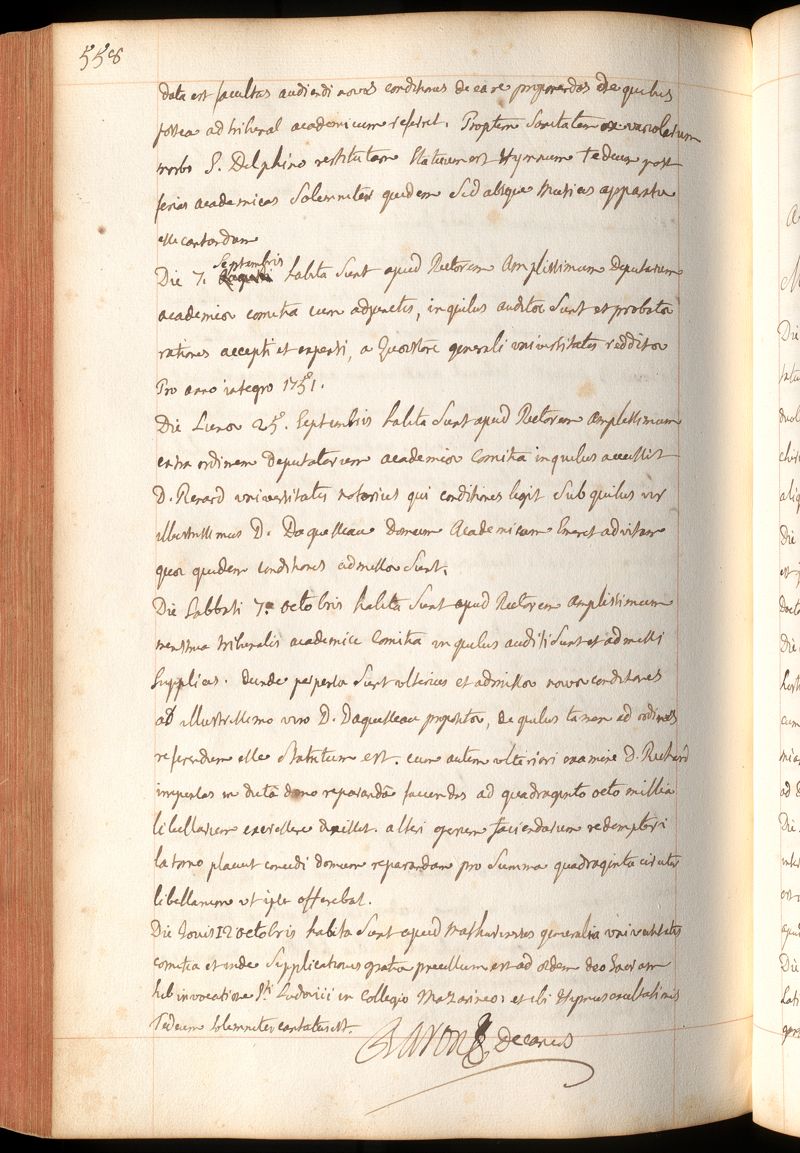 558
data est facultas audiendi novas conditiones de ea re proponendas de quibus
postea ad tribunal academicum referret. Propter Sanitatem ex variolarum
morbo S. Delphino restitutam Statutum est Hymnum Te deum post
ferias academicas Solemniter quidem Sed absque Musico apparatu
esse cantandum
Septembris
Die 7. habita Sunt apud Rectorem Amplissimum Deputatorum
academiæ comitia cum adjunctis, in quibus auditæ Sunt et probatæ
rationes accepti et expensi, a Quæstore generali universitatis redditæ
Pro anno integro 1751.
Die Lunæ 25. Septembris habita Sunt apud Rectorem amplissimum
extra ordinem Deputatorum academiæ Comitia in quibus accessit
D. Renard universitatis notarius qui conditiones legit Sub quibus vir
illustrissimus D. Daguesseau domum Academicam Emeret ad vitam
quæ quidem conditiones admissæ Sunt.
Die Sabbati 7a octobris habita Sunt apud Rectorem amplissimum
menstrua tribunalis academici Comitia in quibus auditi Sunt et admissi
Supplices. deinde perpensæ Sunt ulterius et admissæ novæ conditiones
ab illustrissimo viro D. Daguesseau propositæ, de quibus tamen ad ordines
referendum esse statutum est. cum autem ulteriori examine D. Richard
impensas in dicta domo reparanda faciendas ad quadraginta octo millia
libellarum excedere alteri operum faciendarum redemptori
latorno placuit concedi domum reparandam pro Summa quadraginta circiter
libellarum ut ipse offerebat.
Die Jovis 12 octobris habita Sunt apud Mathurinenses generalia universitatis
comitia et inde Supplicationis gratia processum est ad ædem deo Sacram
Sub invocatione Sti Ludovici in Collegio Mazarineo; et ibi Hymnus
Te deum Solemniter cantatus est.
Baron Decanus